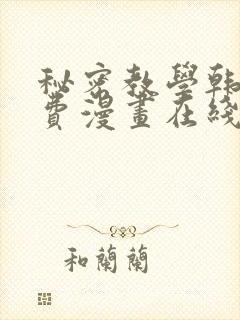 秘密教學韩
費漫畫在綫
和蘭蘭